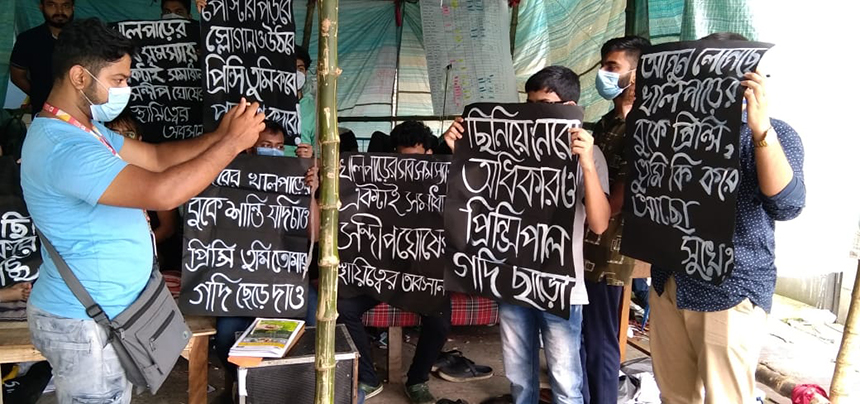 খালপাড়ের
সব সমস্যার
একটাই সমাধান
সন্দীপ ঘোষের
স্থায়িত্বের
অবসান
পোস্টার পড়বে
স্লোগান ও উঠবে
প্রিন্সি তুমি
খালপাড়ের
বুকে শান্তি যদি চাও
প্রিন্সি তুমি তোমার
গদি ছেড়ে দাও
খালপাড়ের সব সমস্যার
একটাই সমাধান
সন্দীপ ঘোষের
স্থায়িত্বের অবসান
ছিনিয়ে নেবো
অধিকার ও
প্রিন্সিপাল
গদি ছাড়ো
আগুন লেগেছে
খালপাড়ের
বুকে প্রিন্সি,
তুমি কি করে
আছো
সুখে?